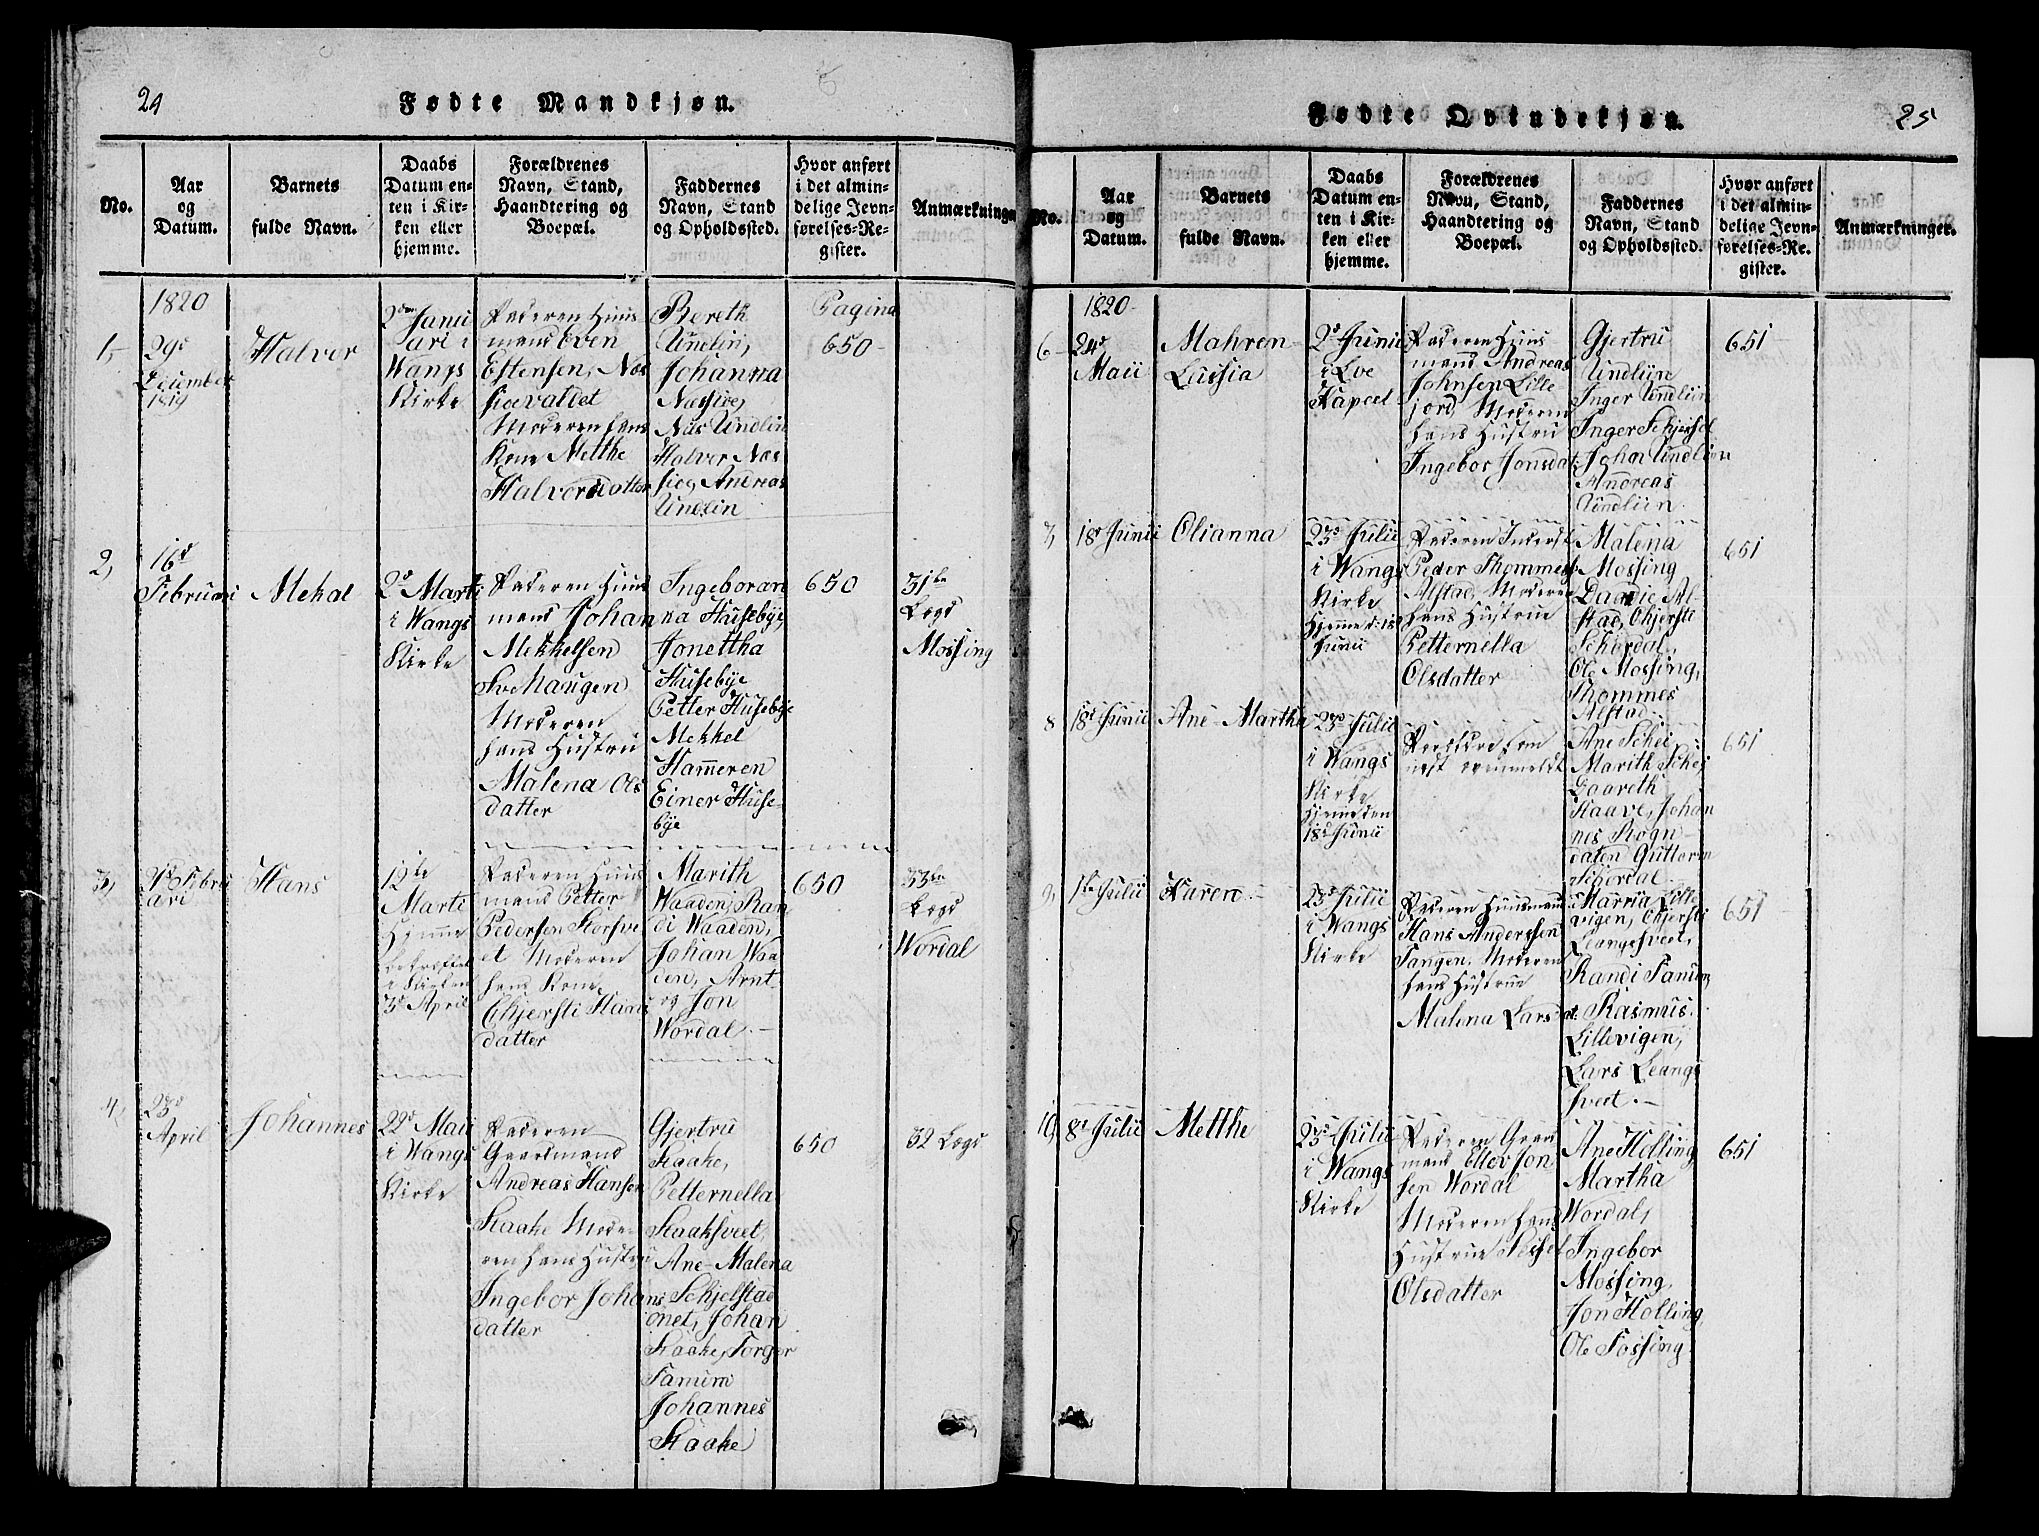 24
Fødte Mandkjøn.
No.
Aar
og
Datum.
Barnets
fulde Navn.
Daabs
Datum en-
ten i Kir-
ken eller
hjemme.
Forældrenes
Navn, Stand,
Haandtering og
Boepæl.
Faddernes
Navn, Stand
og Opholdssted.
Hvor anført
i det almin-
delige Jevn-
førelses-Re-
gister.
Anmærkninger
1820
1,
29d
December
1819
Halvor
2den Janu
ari i
Wangs
Kirke
Faderen Huus
mand Even
Estensen, Næs
sievaldet
Moderen hans
Kone Metthe
Halvorsdatter
Bereth
Undlin,
Johanna
Næssie,
Nils Undlin
Halvor Næs
sieg Andreas
Undlin
Pagina
650
2,
16d
Februari
Mekal
2d Marti
i Wangs
Kirke
Faderen Huus
mand Johan
Mekkelsen
Svehaugen
Moderen
hans Hustru
Malena Ols
datter
Ingeboran
na Husebÿe,
Jonettha
Husebÿe
Petter Husebÿe
Mekkel
Hammeren
Einer Huse-
bÿe
650
31te
Lægd
Mossing
3,
21d Febru
ari
Hans
12te
Marti
Hjemme
bekræftet
i Kirken
3d April
Faderen Huus
mand Petter
Pedersen Storsve
et Moderen
hans Kone
Chjersti Hans
datter
Marith
Waaden, Ran
di Waaden,
Johan Waa
den, Arnt
og Jon
Wordal.
650
33te
Lægd
Wordal
4,
23d
April
Johannes
22d Maii
i Wangs
Kirke
Faderen
Gaardmand
Andreas Hansen
Staake Mode
ren hans Hustru
Ingebor Johans
datter
Gjertru
Staake,
Petternella
Staaksveet,
Ane Malena
Schjelstad
onet, Johan
Staake, Torger
Fanum
Johannes
Staake
650
32 Lægd
25
Fødte Qvindekjøn.
No.
Aar
og
Datum.
Barnets
fulde Navn.
Daabs
Datum en-
ten i Kir-
ken eller
hjemme.
Forældrenes
Navn, Stand,
Haandtering og
Boepæl.
Faddernes
Navn, Stand
og Opholdssted.
Hvor anført
i det almin-
delige Jevn-
førelses-Re-
gister.
Anmærkninger.
1820
6
24d
Maii
Mahren
Lussia
2d Junii
i Løe
Kapcel
Faderen Huus
mand Andreas
Johnsen Lille
jord Moderen
hans Hustru
Ingebor Jonsdat:
Gjertru
Undlün
Inger Undlün
Inger Schjerset
Johan Undlün
Andreas
Undlün
651
7,
18d Junii
Olianna
23d Julii
i Wangs
Kirke
Hjemme d: 18
Junii
Faderen Inderst
Peder Thommes:
Alstad, Moderen
hans Hustrue
Petternella
Olsdatter
Malena
Mossing
Daarie Al-
stad, Chjersti
Schordal,
Ole Mossing,
Thommes
Alstad
651
8
18d Junii
Ane Martha
23d Julii
i Wangs
Kirke
Hjemme den
18d Junii
Forældre som
næst ovenmeldt
Ane Schei,
Marith Schej
Gaareth
Staave, Johan
nes Rogn
dalen Gutterm
Schordal
651
9,
1te Julii
Karen
23d Julii
i Wangs
Kirke
Faderen Huusmand
Hans Anderssen
Tangen, Moderen
hans Hustrue
Malena Larsdat:
Marria Lille
vigen, Chjersti
Leangsveet,
Randi Fanum,
Rasmus
Lillevigen,
Lars Leangs
sveet.
651
10,
8d Julii
Metthe
23d Julii
i Wangs
Kirke
Faderen Gaard
mand Ellev Jon
sen Wordal
Moderen hans
Hustrue Sissel
Olsdatter
Ane Holling
Martha
Wordal,
Ingebor
Mossing,
Jon Holling,
Ole Fossing
651